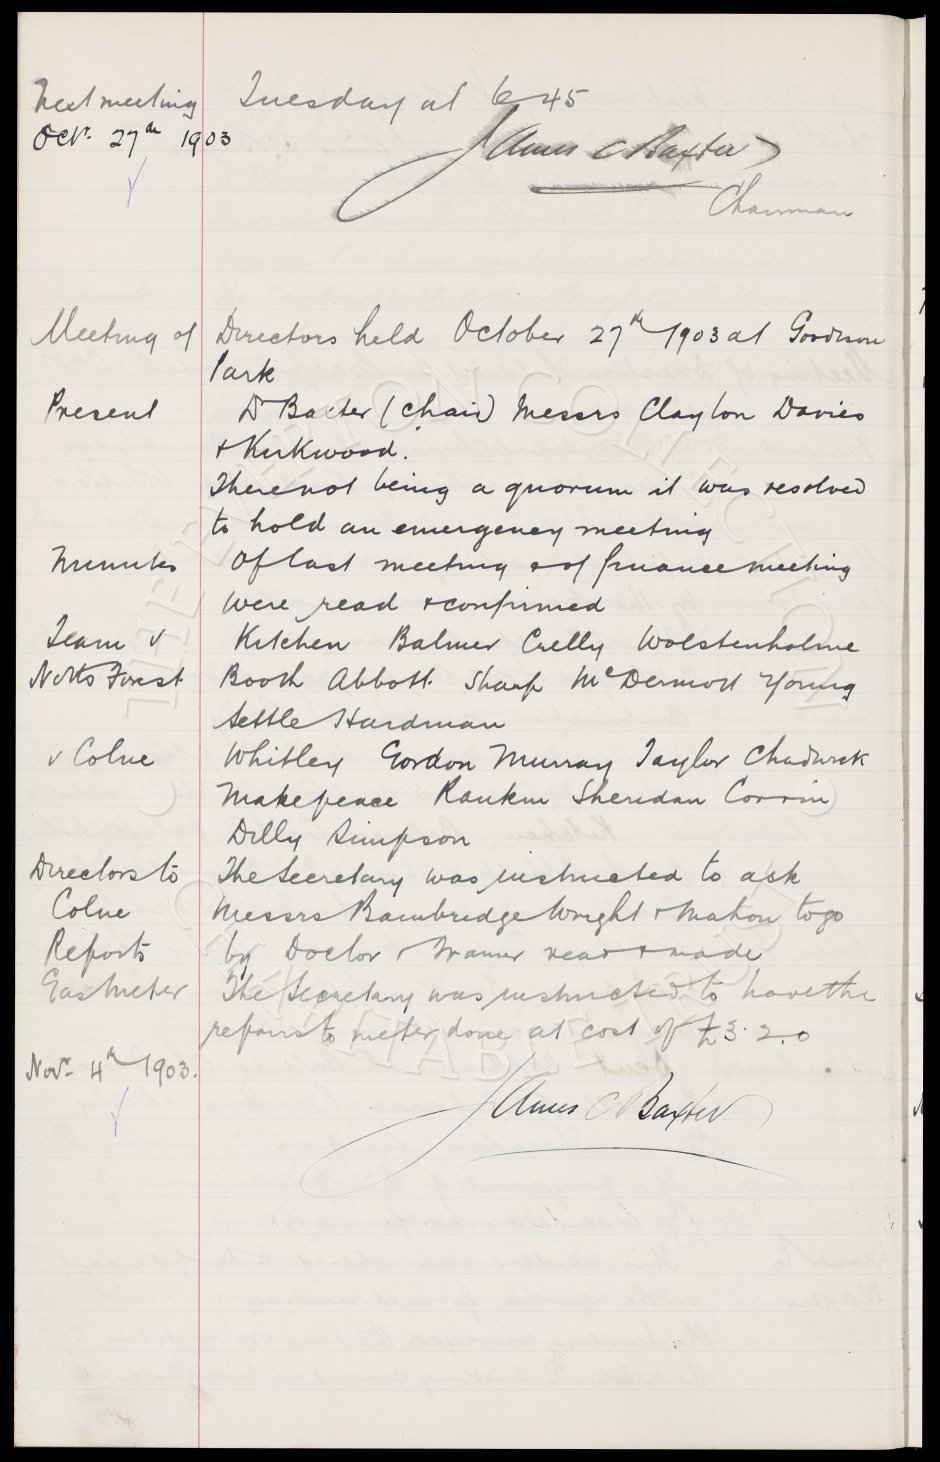 Next meeting Tuesday at 6-45
Octr. 27th 1903 James C Baxter
Chairman
Meeting of Directors held October 27th 1903 at Goodison
Park
Present Dr Baxter (chair) Messrs Clayton Davies
+ Kirkwood.
There not being a quorum it was resolved
to hold an emergency meeting
Minutes Of last meeting + of finance meeting
were read + confirmed
Team v Kitchen Balmer Crelly Wolstenholme
Notts Forest Booth Abbott Sharp McDermott Young
Settle Hardman
v Colne Whitley Gordon Murray Taylor Chadwick
Makepeace Rankin Sheridan Corrin
Dilly Simpson
Directors to The Secretary was instructed to ask
Colne Messrs Bainbridge Wright + Mahon to go
Reports by Doctor + Trainer read + made
Gas Meter The Secretary was instructed to have the
repairs to meter done at cost of £3.2.0
Novr. 4th 1903.
James C Baxter
THE EVERTON COLLECTION
CHARITABLE TRUST